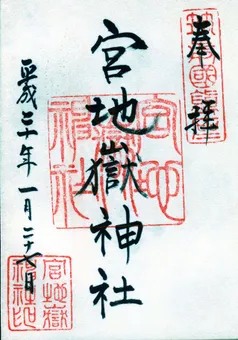 奉拝
宮地嶽神社
平成三十年一月二十八日
宮地嶽
神社印